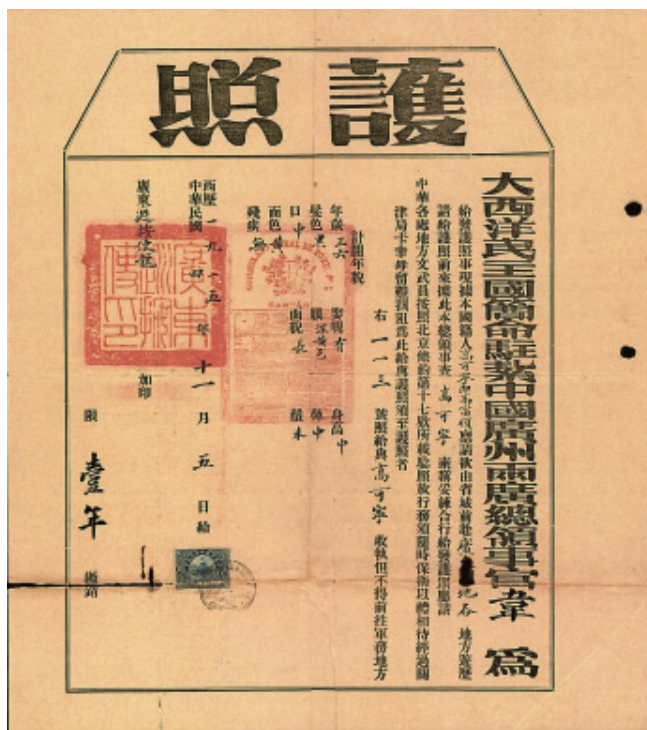 護照
大西洋民主國簡命駐紮中國廣州兩廣總領事官韋 為
給發護照事現據本國籍人高可寧請欲由省城前赴廣地各 地方遊歷
請給護照前來據此本總領事查 高可寧 妥練合行給發護照應請
中華各處地方文武員按照北京條約第十七欵所載驗照放行務須隨時保衛以禮相待經過關
津局卡幸毋留難攔阻爲此給與護照須至護照者
右 一一三 號照給與高可寧 收執但不得前往軍務地方
計開年貌
年歲 三六 娶親 有 身高 中
髮色 黑 深黃色 鼻 中
目 中 面貌 長 鬚 未
面色 黃
殘疾 無
西歷 一九一五
中華民國 四 年 十一 月 五 日給
廣東巡按使號 加印
廣東巡按使印
限 壹年 繳銷